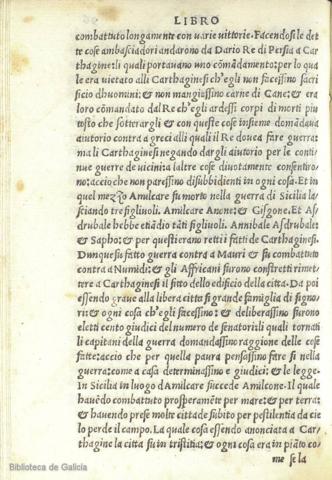 LIBRO
combattuto longamente con varie vittorie. Facendosi le det
te cose ambasciadori andarono da Dario Re di Persia a Car
thagine: li quali portauano uno cōmādamento: per lo qua
le era vietato alli Carthaginesi ch'egli non facessino sacri
ficio dhuomini: & non mangiassino carne di Cane: & era
loro cōmandato dal Re ch'egli ardessi corpi di morti piu
tosto che sotterargli & con queste cose insieme domādaua
aiutorio contra a greci alli quali il Re douea fare guerra:
ma li Carthaginesi negando dargli aiutorio per le conti‐
nue guerre de uicini: altre cose diuotamente consentiro‐
no: accio che non paressino disubbidienti in ogni cosa. Et in
quel mezzo Amilcare su morto nella guerra di Sicilia la‐
sciando tre figliuoli. Amilcare Anone: & Gisgone. Et As
drubale hebbe etiādio tāti figliuoli. Annibale Asdrubale:
& Sapho: & per questi erano retti i fatti de Carthaginesi.
Dunque su fatto guerra contra a Mauri & su combattuto
contra a Numidi: & gli Affricani surono constretti rimet‐
tere a Carthaginesi il fitto dello edificio della citta. Da poi
essendo graue alla libera citta si grande famiglia di signo‐
ri: & ogni cosa ch'egli facessino: & deliberassino surono
eletti cento giudici del numero de senatori: li quali tornati
li capitani della guerra domandassino raggione delle cose
fatte: accio che per quella paura pensassino fare si nella
guerra: come a casa determinassino e giudici: & le legge.
In Sicilia in luogo dAmilcare succede Amilcone. Il quale
hauēdo combattuto prosperamēte per mare: & per terra:
& hauendo prese molte cittade subito per pestilentia da cie
lo perde il campo. La quale cosa essendo anonciata a Car‐
thagine la citta su in tristitia: & ogni cosa era in piāto co‐
me se la
Biblioteca de Galicia